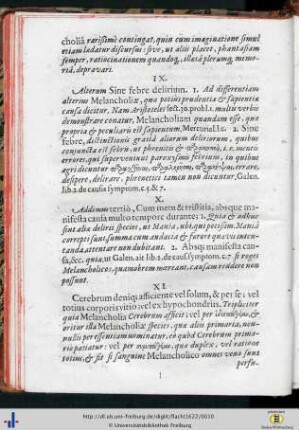 cholia rarissimè contingat, quin cum imaginatione simul
etiam lædatur discursus: sive, ut aliis placet, phantasiam
semper, ratiocinationem quandoq, illæsâ plerumq, memo-
riâ, depravari.
IX.
Alterum Sine febre delirium. 1. Ad differentiam
alterius Melancholiæ, quæ potius prudentiæ & sapientiæ
causa dicitur. Nam Aristoteles sect. 30. probl. 1. multis verbis
demonstrare conatur, Melancholiam quandam esse, quæ
propria & peculiaris est sapientum, Mercurial. l. c. 2. Sine
febre, distinctionis gratiâ aliarum deliriorum, quibus
conjuncta est febris, ut phrenitis & i. e. mentis
errores, qui superveniunt paroxysmo febrium, in quibus
ægri dicuntur errare,
desipere, delirare, phrenetici tamen non dicuntur, Galen.
lib. 2. de causis symptom. c. 5. & 7.
X.
Additum tertiò, Cum metu & tristitia, absque ma-
nifesta causa multo tempore durante: 1. Quia & adhuc
sint aliæ delirii species, ut Mania, ubi, qui potissim. Mania
correpti sunt, summa cum audacia & furore quævis aggre-
tentanda, attentare non dubitant. 2. Absq; manifesta cau-
sa, &c. quia, ut Galen. ait lib. 2. de causis symptom. c. 7. si roges
Melancholicos, quamobrem mœreant, causam reddere non
possunt.
XI.
Cerebrum deniq; afficiente vel solum, & per se: vel
totius corporis vitio: vel ex hypochondriis. Tripliciter
quia Melancholia Cerebrum afficit: vel per &
oritur illa Melancholiæ species, quæ aliis primaria, non-
nullis per essentiam nominatur, eo quòd Cerebrum primò
patiatur: vel per quæ duplex, vel ratione
totius, & fit si sanguine Melancholico omnes venæ sunt
http://dl.ub.uni-freiburg.de/diglit/flacht1622/0010
© Universitätsbibliothek Freiburg